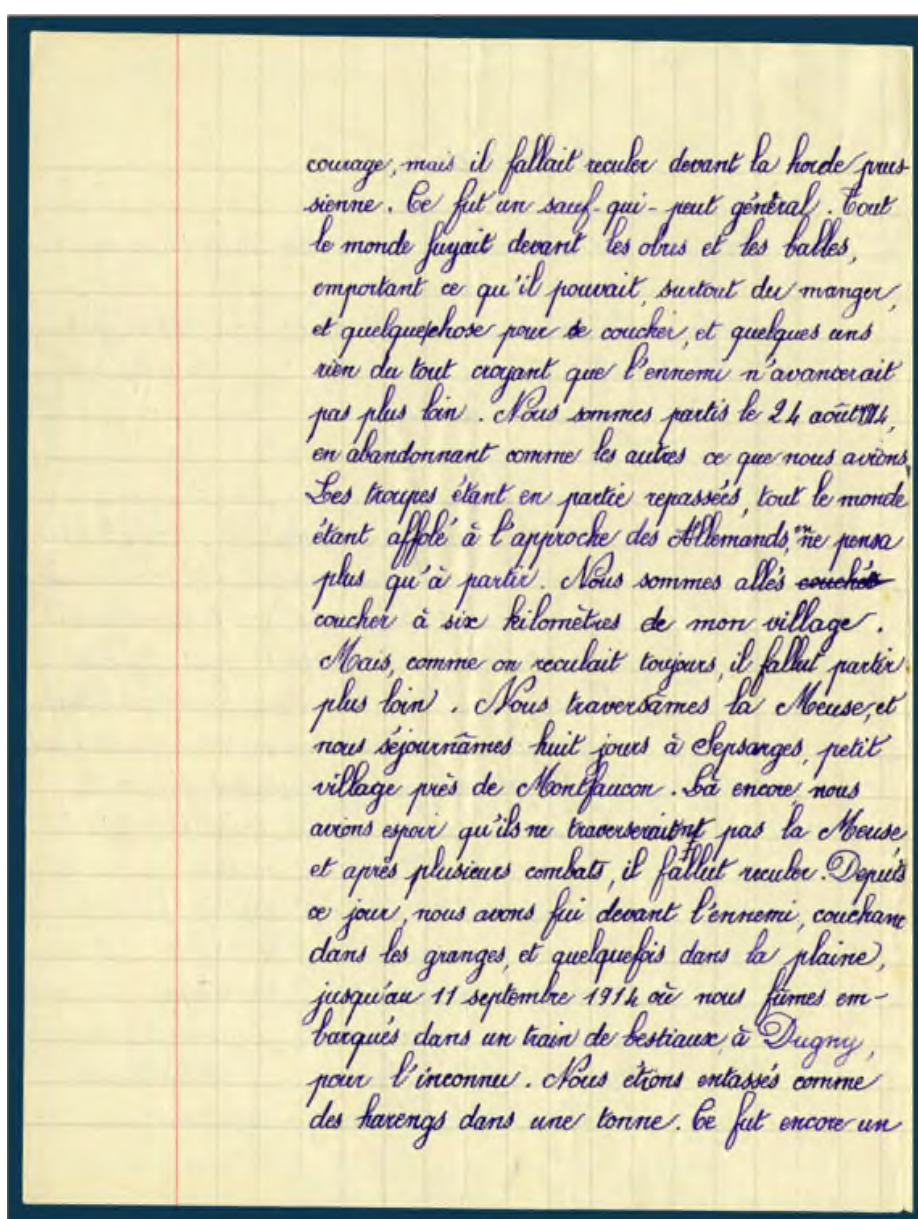 courage, mais il fallait reculer devant la horde prus-
sienne. Ce fut un sauf-qui-peut général. Tout
le monde fuyait devant les obus et les balles,
emportant ce qu'il pouvait, surtout du manger,
et quelquechose pour se coucher, et quelques uns
rien du tout croyant que l'ennemi n'avancerait
pas plus loin. Nous sommes partis le 24 août 1914,
en abandonnant comme les autres ce que nous avions.
Les troupes étant en partie repassées, tout le monde
étant affolé à l'approche des Allemands, on ne pensa
plus qu'à partir. Nous sommes allés couchés
coucher à six kilomètres de mon village.
Mais, comme on reculait toujours, il fallut partir
plus loin. Nous traversâmes la Meuse, et
nous séjournâmes huit jours à Sepsarges, petit
village près de Montfaucon. Là encore, nous
avions espoir qu'ils ne traverseraient pas la Meuse
et après plusieurs combats, il fallut reculer. Depuis
ce jour, nous avons fui devant l'ennemi, couchant
dans les granges, et quelquefois dans la plaine,
jusqu'au 11 septembre 1914 où nous fûmes em-
barqués dans un train de bestiaux, à Dugny,
pour l'inconnu. Nous étions entassés comme
des harengs dans une tonne. Ce fut encore un